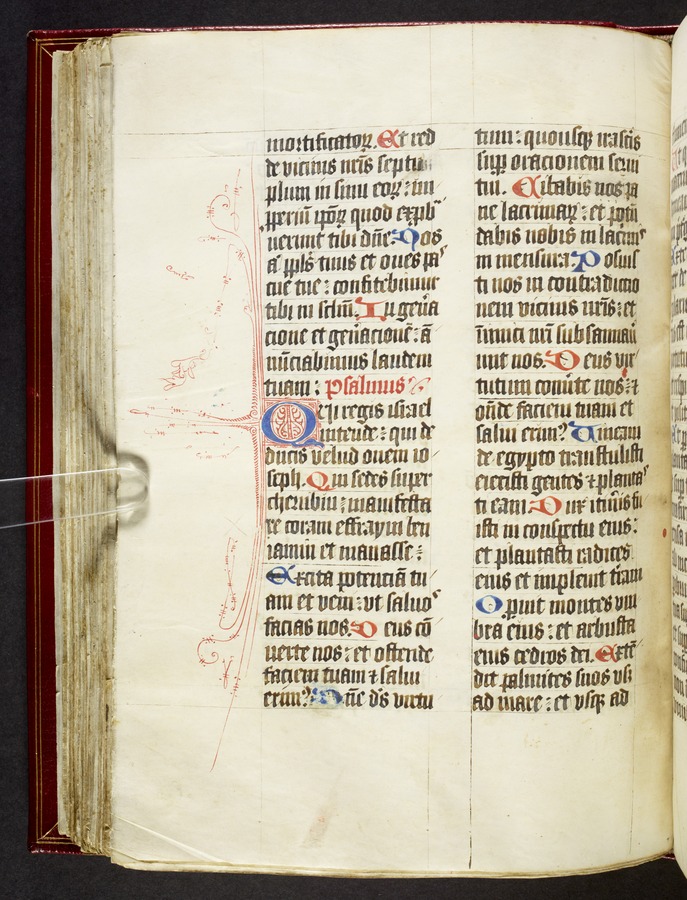 mortificatoꝝ. Et red
de vicinis nr̄is septu
plum in sinu eoꝝ: im
ꝓperiū ip̄oꝝ quod exp̄b
uerunt tibi dn̄e. Nos
aͥ ppl̄s tuus et oues pa
cue tue: confitebimur
tibi in sclm̄. In gen̄a
cione et gen̄acionē: ā
nūciabimus laudem
tuam: Psalmus
Qui regis israel
intende: qui de
ducis velud ouem io
seph. Qui sedes super
cherubin: manifesta
re coram effraym ben
iamin et manasse:
Excita potenciā tu
am et veni: vt saluos
facias nos. Deus cō
uerte nos: et ostende
faciem tuam ⁊ salui
erim⁹. Dn̄e ds̄ virtu
tum: quousqꝫ irasc̄is
sup̄ oracionem serui
tui. Cibabis nos pa
ne lacrimaꝝ: et potū
dabis nobis in lacrim̄
in mensura: Posuis
ti nos in contradictio
nem vicinis nr̄is: et
inimici nr̄i subsannau
unt nos. Deus vir
tutum conūte nos: ⁊
on̄de faciem tuam et
salui erim⁹. Vineam
de egypto transtulisti
eiecisti gentes ⁊ planta
ti eam. Dux itin̄is fu
isti in conspectu eius:
et plantasti radices
eius et impleuit t̄ram
Opuit montes vm
bra eius: et arbusta
eius cedros dei. Exte
dit palmites suos vsꝫ
ad mare: et vsqꝫ ad